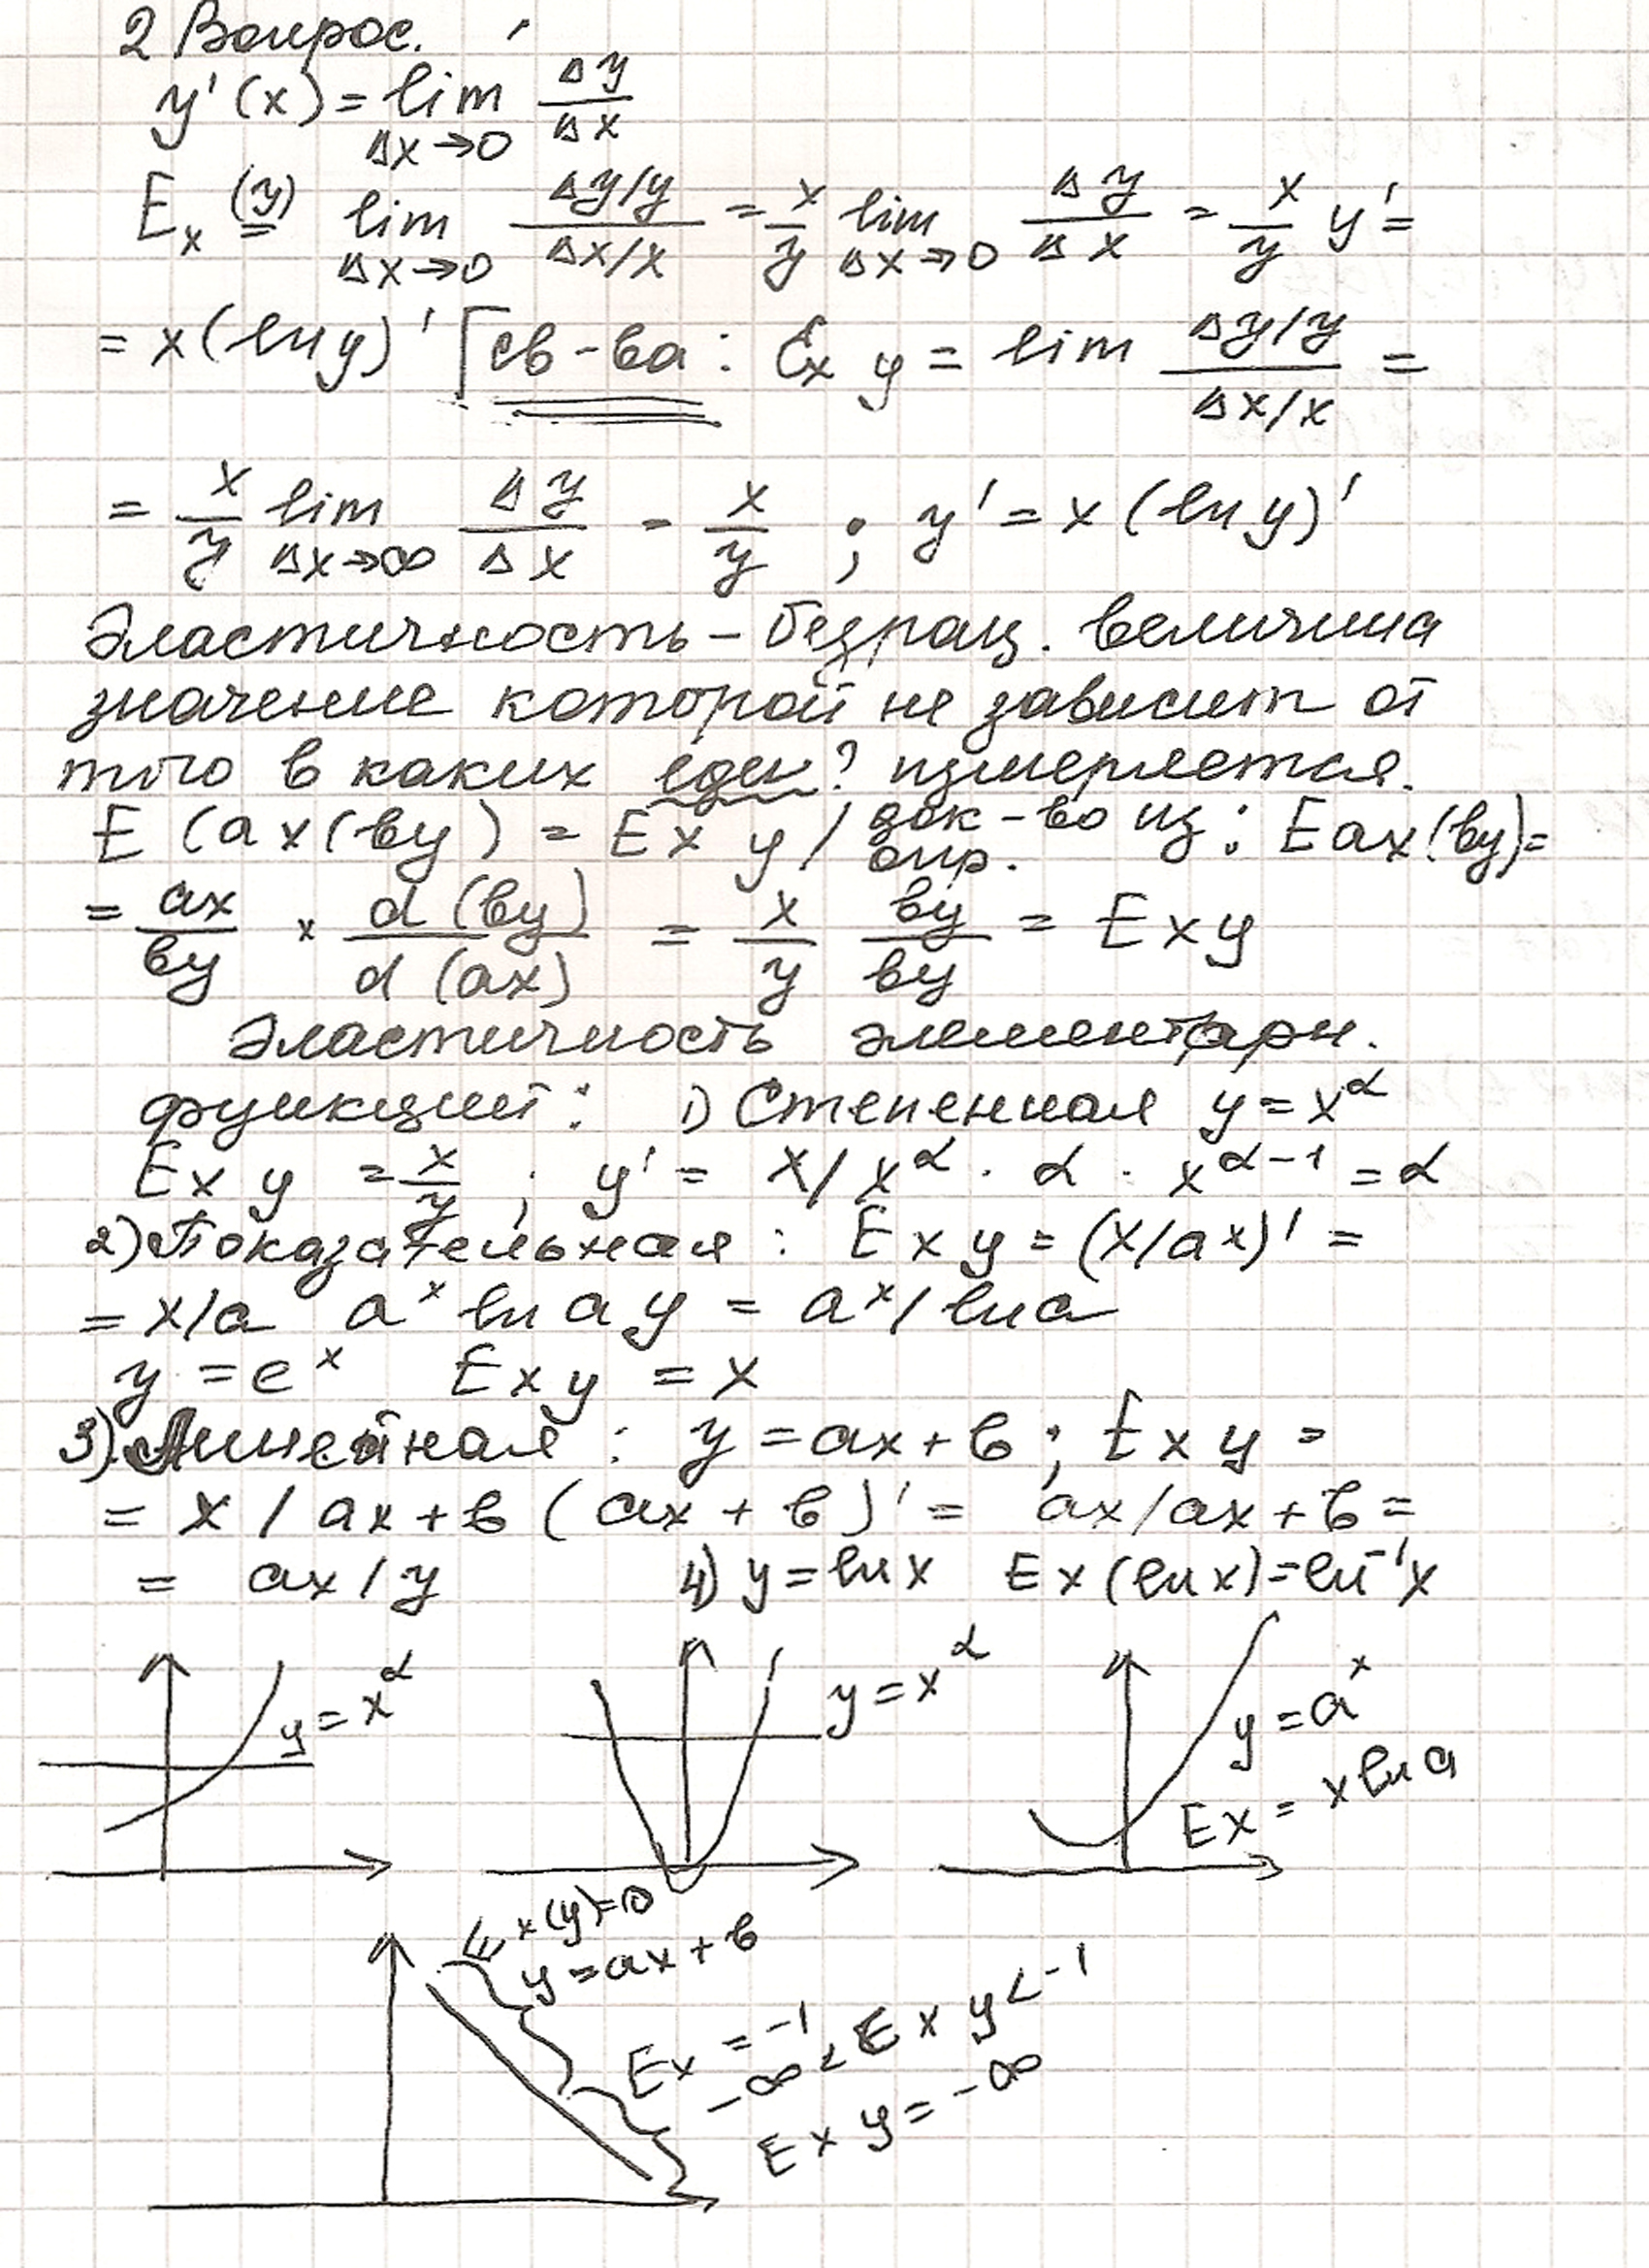 2 Вопрос.
y'(x) = lim Δx→0 Δy/Δx
Ex (y) = lim Δx→0 (Δy/y)/(Δx/x) = x/y lim Δx→0 Δy/Δx = x/y y' =
= x(ln y)' св-ва: Ex y = lim (Δy/y)/(Δx/x) =
= x/y lim Δx→∞ Δy/Δx = x/y ; y' = x (ln y)'
Эластичность – безраз. величина
значение которой не зависит от
того в каких един? измеряется.
E (ax(by) = Ex y / док-во из опр. : Eax(by) =
= ax/by × d(by)/d(ax) = x/y by/by = Exy
Эластичность элементарн.
функций: 1) Степенная y = x^α
Ex y = x/y ; y' = x/x^α · α · x^α-1 = α
2) Показательная : Ex y = (x/ax)' =
= x/a a^x ln a y = a^x/ln a
y = e^x Exy = x
3) Линейная : y = ax + b ; Ex y =
= x / ax + b (ax + b)' = ax/ax + b =
= ax/y 4) y = ln x Ex (ln x) = ln⁻¹x
y = x^α
y = x^α
y = a^x
Ex = x ln a
Ex(y)=0
y = ax + b
Ex = -1
-∞ < Ex y < -1
Ex y = -∞